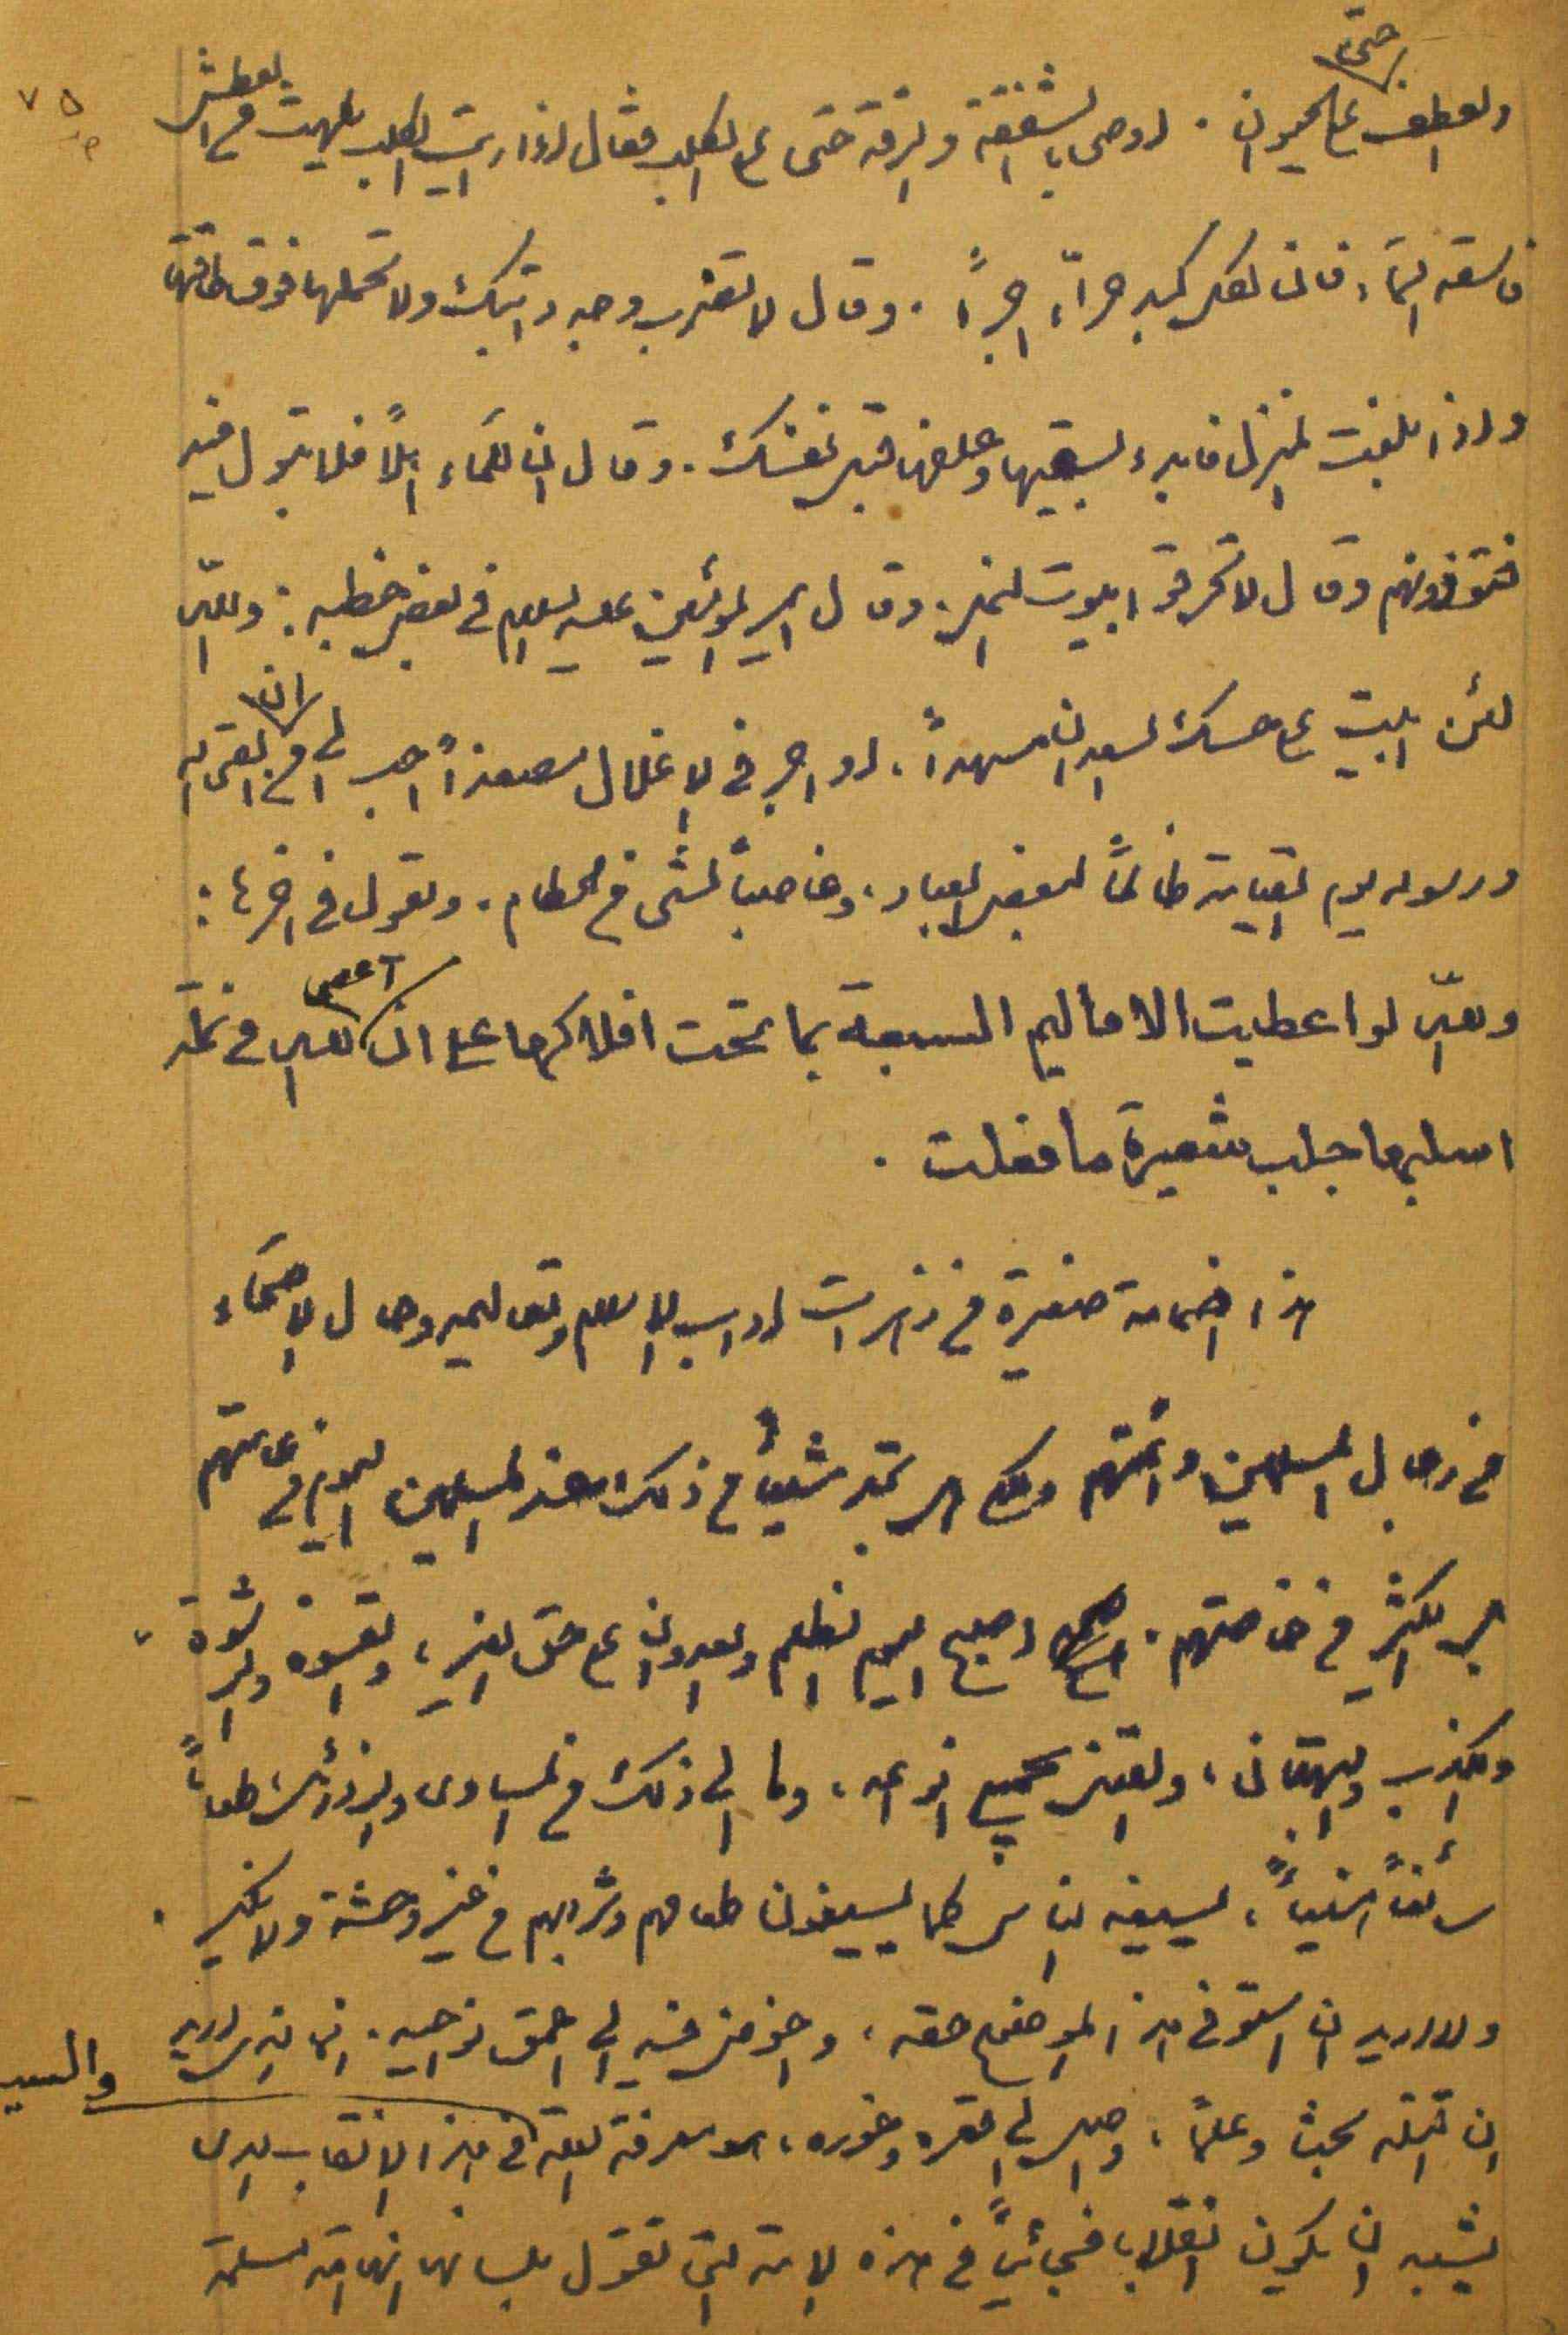 والعطف على حتى الحيوان . اوصى بالشفقة والرقة حتى على الكلب فقال اذا رايت الكلب يلهث من العطش
فاسقه الماء فان لكل كبد حراء اجراً . وقال لا تضرب وجه دابتك ولا تحملها فوق طاقتها
واذا بلغت المنزل فابدء بسقيها وعلفها قبل نفسك . وقال ان للماء اهلاً فلا تبول فيه
فتؤذونهم وقال لا تحرقوا بيوت النمل . وقال امير المؤمنين عليه السلام في بعض خطبه : والله
لئن ابيت على حسك السعدان مسهداً ، او اجر في الاغلال مصفداً احب الي من ان القى الله
ورسوله يوم القيامة ظالماً لبعض العباد ، وغاصباً لشئ من الحطام . ويقول في اخرها :
والله لو اعطيت الاقاليم السبعة بما تحت افلاكها على ان اعصي الله في نملة
اسلبها جلب شعيرة ما فعلت .
هذا اضمامة صغيرة من زهرات اداب الاسلام وتعاليمه وحال الاصحاء
من رجال المسلمين وائمتهم ولكن هل تجد شيئاً من ذلك عند المسلمين اليوم في عامتهم
بل الكثير من خاصتهم . اصبح اليوم الظلم والعدوان على حق الغير ، والقسوة والرشوة
والكذب والبهتان ، والغش بجميع انواعه ، وما الى ذلك من المساوى والرذائل طعاماً
سائغاً هنيئاً ، يسيغه الناس كما يسيغون طعامهم وشرابهم من غير وحشة ولا نكير .
ولا اريد ان استوفي هذا الموضع حقه ، واخوض فيه الى اعمق نواحيه . انما الذي اريد
ان اقتله بحثاً وعلماً ، واصل الى قعره وغوره ، هو معرفة العلة والسبب في هذا الانقلاب الذي
يشبه ان يكون انقلاباً فجائياً في هذه الامة التي تقول بلسانها انها امة مسلمة